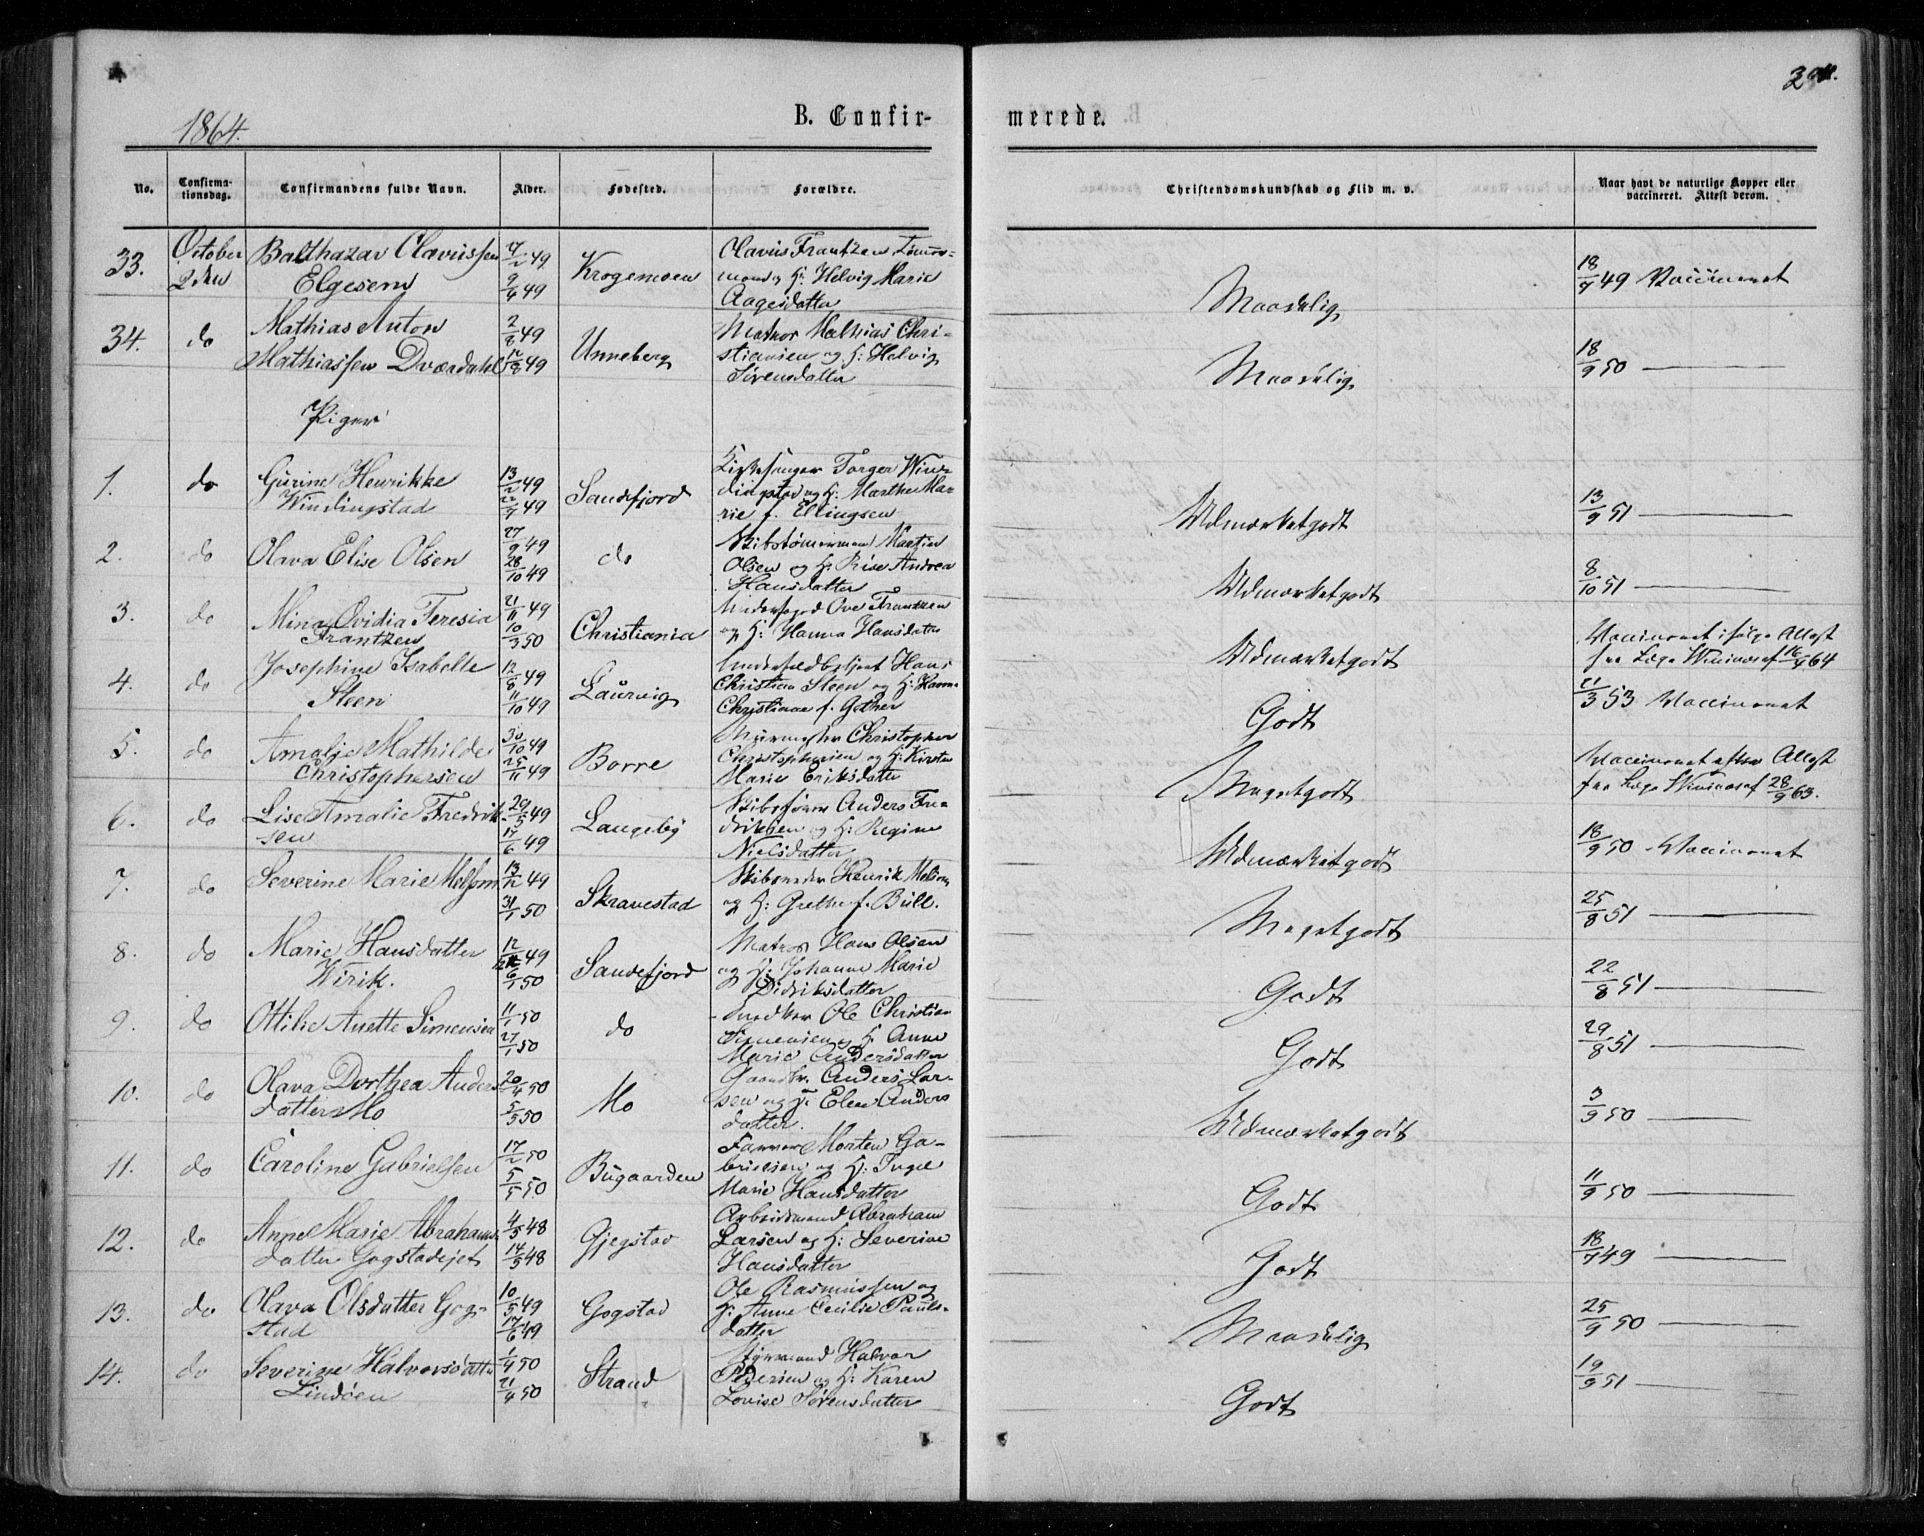 1864.
B. Confir-
merede.
No.
Confirma-
tionsdag.
Confirmandens fulde Navn.
Alder.
Fødested.
Forældre.
Christendomskundskab og Flid m. v.
Naar havt de naturlige Kopper eller
vaccineret. Attest derom.
33. October Balthazar Clavussen 49 Krogemoen Clavus Frantzen Tømmer-
2den Elgesem 9/4 49 mand og H: Helvig Marie
Aagesdatter Maadelig 18/7 49 Vaccineret
34. do Mathias Anton 2/8 49 Unneberg Matros Mathias Chri-
Mathiassen Dværdahl 12/8 49 stiansen og H: Helvig
Sørensdatter Maadelig 18/9 50 —
Piger
1. do Gurine Henrikke 13/2 49 Sandefjord Kirkesanger Torger Win-
Windingstad 22/4 49 dingstad og H: Marthe Ma-
rie f. Ellingsen Udmærket godt 13/9 51 —
2. do Olava Elise Olsen 27/9 49 do Skibstømmermand Martin
28/10 49 Olsen og H: Andrea
Hansdatter Udmærket godt 8/10 51 —
3. do Mina Ovidia Teresia 21/11 49 Christiania Underfoged Ove Frantzen
Frantzen 10/3 50 og H: Hanna Hansdatter Udmærket godt Vaccineret ifølge Attest
fra Læge 64
4. do Josephine Isabelle 12/8 49 Laurvig Hans
Steen 11/10 49 Christian Steen og H: Hanna
Christiane f. Gether Godt 21/3 53 Vaccineret
5. do Amalje Mathilde 30/10 49 Borre Murmester Christopher
Christophersen 25/11 49 Christophersen og H: Kirsten
Marie Eriksdatter Meget godt Vaccineret efter Attest
fra Læge 28/9 63.
6. do Lise Amalie Fredrik- 29/5 49 Langeby Skibsfører Anders Fre-
sen 17/6 49 driksen og H: Regine
Nielsdatter Udmærket godt 18/9 50 Vaccineret
7. do Severine Marie Melsom 13/12 49 Skravestad Skibsreder Henrik Melsom
31/1 50 og H: Grethe f. Bull. Meget godt 25/8 51 —
8. do Marie Hansdatter 12/12 49 Sandefjord Matros Hans Olsen
Wirik. 6/1 50 og H: Johanne Marie
Didriksdatter Godt 22/8 51 —
9. do Ottilie Anette Simensen 11/1 50 do Snedker Ole Christian
27/1 50 Simensen og H: Anne
Marie Andersdatter Godt 29/8 51 —
10. do Olava Dorthea Anders- 20/4 50 Mo Gaardbr. Anders Lar-
datter Mo 5/5 50 sen og H: Elen Anders
datter. Udmærket godt 3/9 50 —
11. do Caroline Gabrielsen 17/2 50 Bugaarden Farver Morten Ga-
5/5 50 brielsen og H: Inge
Marie Hansdatter Godt 11/9 50 —
12. do Anne Marie Abrahams- 4/5 48 Gjegstad Arbeidsmand Abraham
datter Gogstadejet 14/5 48 Larsen og H: Severine
Hansdatter Godt 18/7 49 —
13. do Olava Olsdatter Gog- 10/5 49 Gogstad Ole Rasmussen og
stad 17/6 49 H: Anne Cecilie Pauls-
datter Maadelig 25/9 50 —
14. do Severine Halvorsdatter 1/4 50 Strand Styrmand Halvor
Lindøen 21/4 50 Pedersen og H: Karen
Lovise Sørensdatter Godt 19/9 51 —